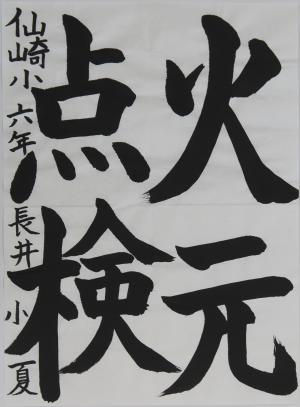 火元
点検
仙崎小 六年 長井 小夏